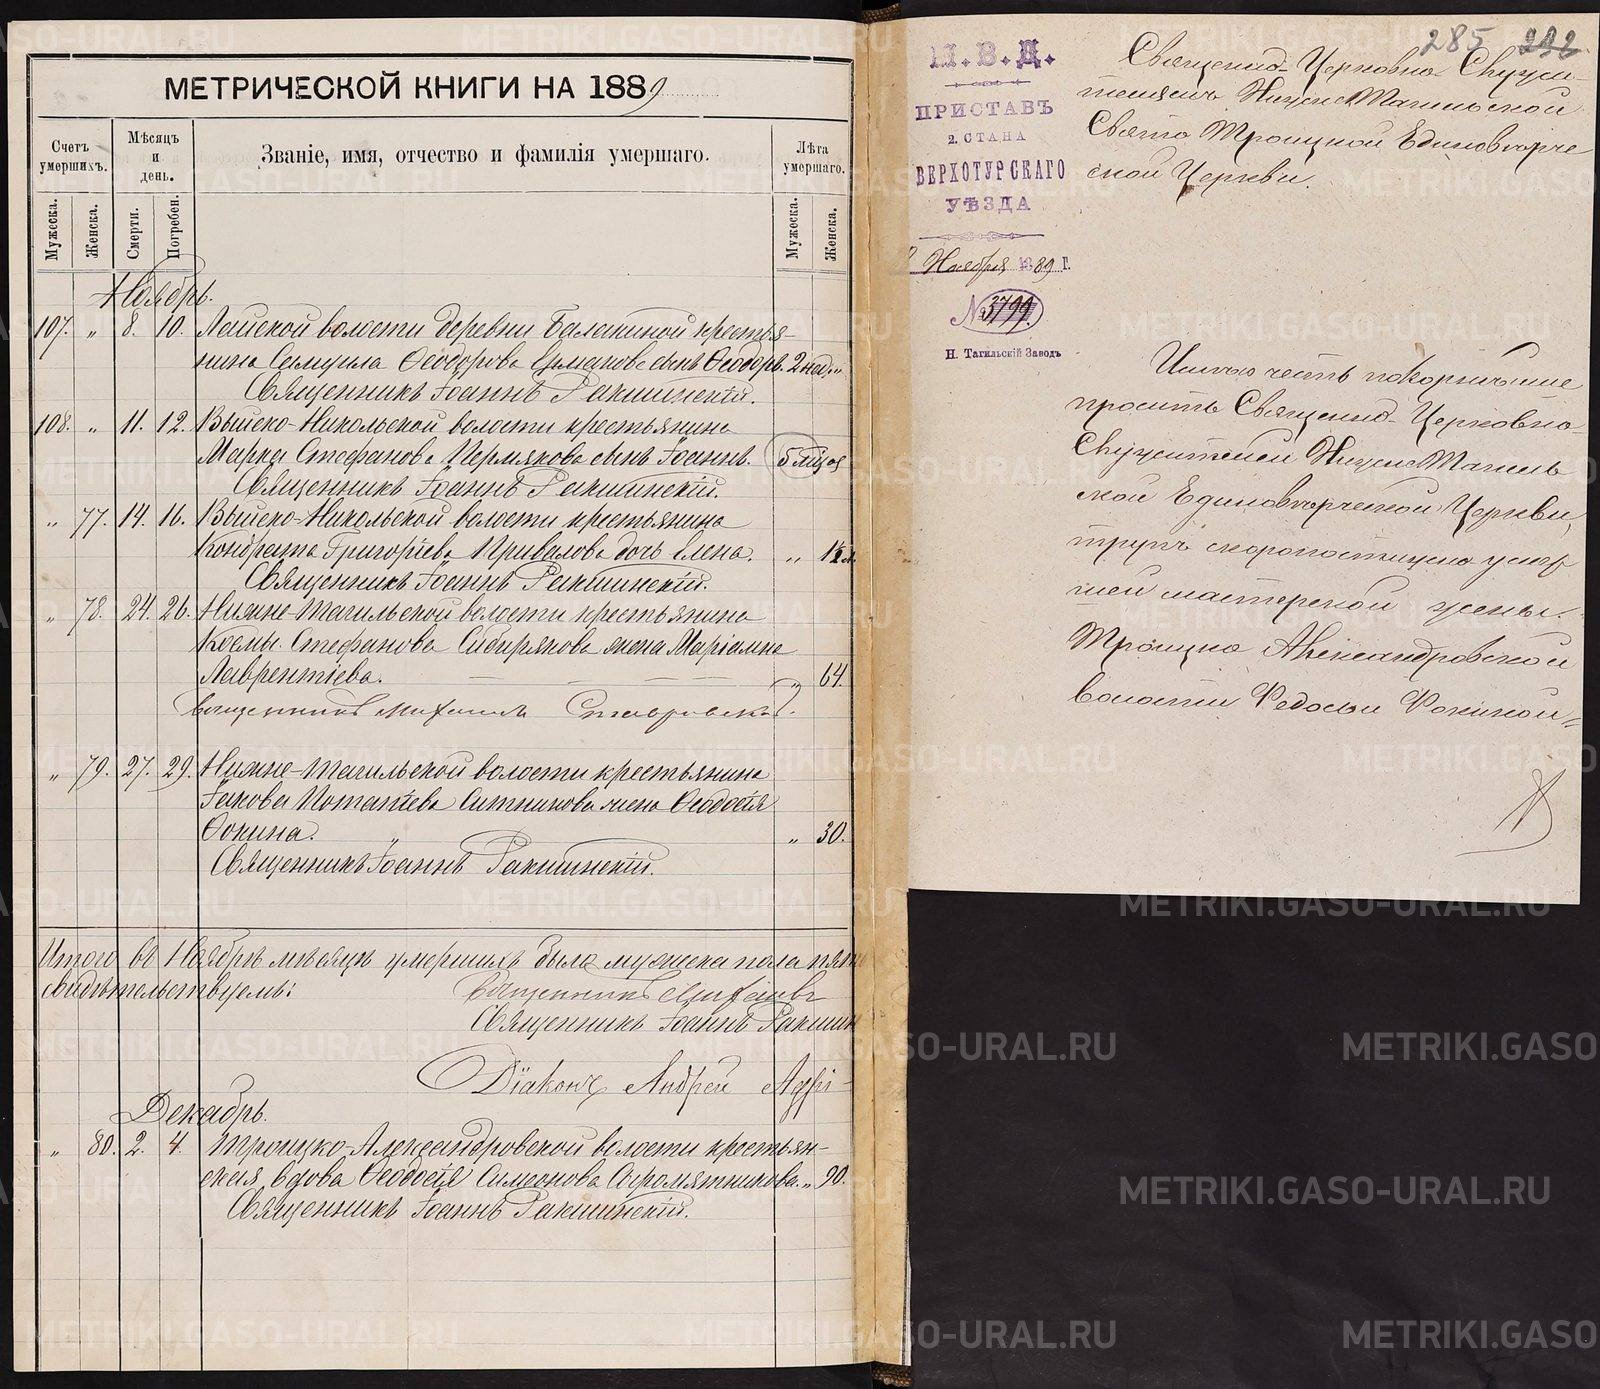 МЕТРИЧЕСКОЙ КНИГИ НА 1889
Счетъ умершихъ.
Мѣсяцъ и день.
Званіе, имя, отчество и фамилія умершаго.
Лѣта умершаго.
Мужеска.
Женска.
Смерти.
Погребен.
Мужеска.
Женска.
Ноябрь.
107. „ 8. 10. Лайской волости деревни Балакиной крестья-
нина Самуила Ѳеодорова сынъ Ѳеодоръ. 2 нед. „
Священникъ Іоаннъ Ракшинскій.
108. „ 11. 12. Выйско-Никольской волости крестьянина
Марка Стефанова Пермякова сынъ Іоаннъ. 5 мѣс.
Священникъ Іоаннъ Ракшинскій.
„ 77. 14. 16. Выйско-Никольской волости крестьянина
Кондрата Григоріева Привалова дочь Елена. „ 1½ л.
Священникъ Іоаннъ Ракшинскій.
„ 78. 24. 26. Нижне-Тагильской волости крестьянина
Космы Стефанова Сибирякова жена Маріамна
Лаврентіева. „ 64.
Священникъ Михаилъ
„ 79. 27. 29. Нижне-Тагильской волости крестьянина
Іакова Потапіева Ситникова жена Ѳеодосія
Фокина. „ 30.
Священникъ Іоаннъ Ракшинскій.
Итого въ Ноябрѣ мѣсяцѣ умершихъ было мужеска пола пять
свидѣтельствуемъ:
Священникъ Михаилъ
Священникъ Іоаннъ Ракшин
Діаконъ Андрей
Декабрь.
„ 80. 2. 4. Троицко-Александровской волости крестьян-
ская вдова Ѳеодосія Симеонова Сыромятникова. „ 90.
Священникъ Іоаннъ Ракшинскій.
285
М.В.Д.
ПРИСТАВЪ
2. СТАНА
ВЕРХОТУРСКАГО
УѢЗДА
Ноября 1889 г.
№ 3799.
Н. Тагильскій Заводъ
Священно-Церковно Служи-
телямъ Нижне Тагильской
Свято Троицкой Единовѣрче
ской Церкви.
Имѣю честь покорнѣйше
просить Священно-Церковно-
Служителей Нижне Тагиль
ской Единовѣрческой Церкви,
трупъ скоропостижно умер
шей мастерской жены
Троицко Александровской
волости Федосьи Фокиной
METRIKI.GASO-URAL.RU